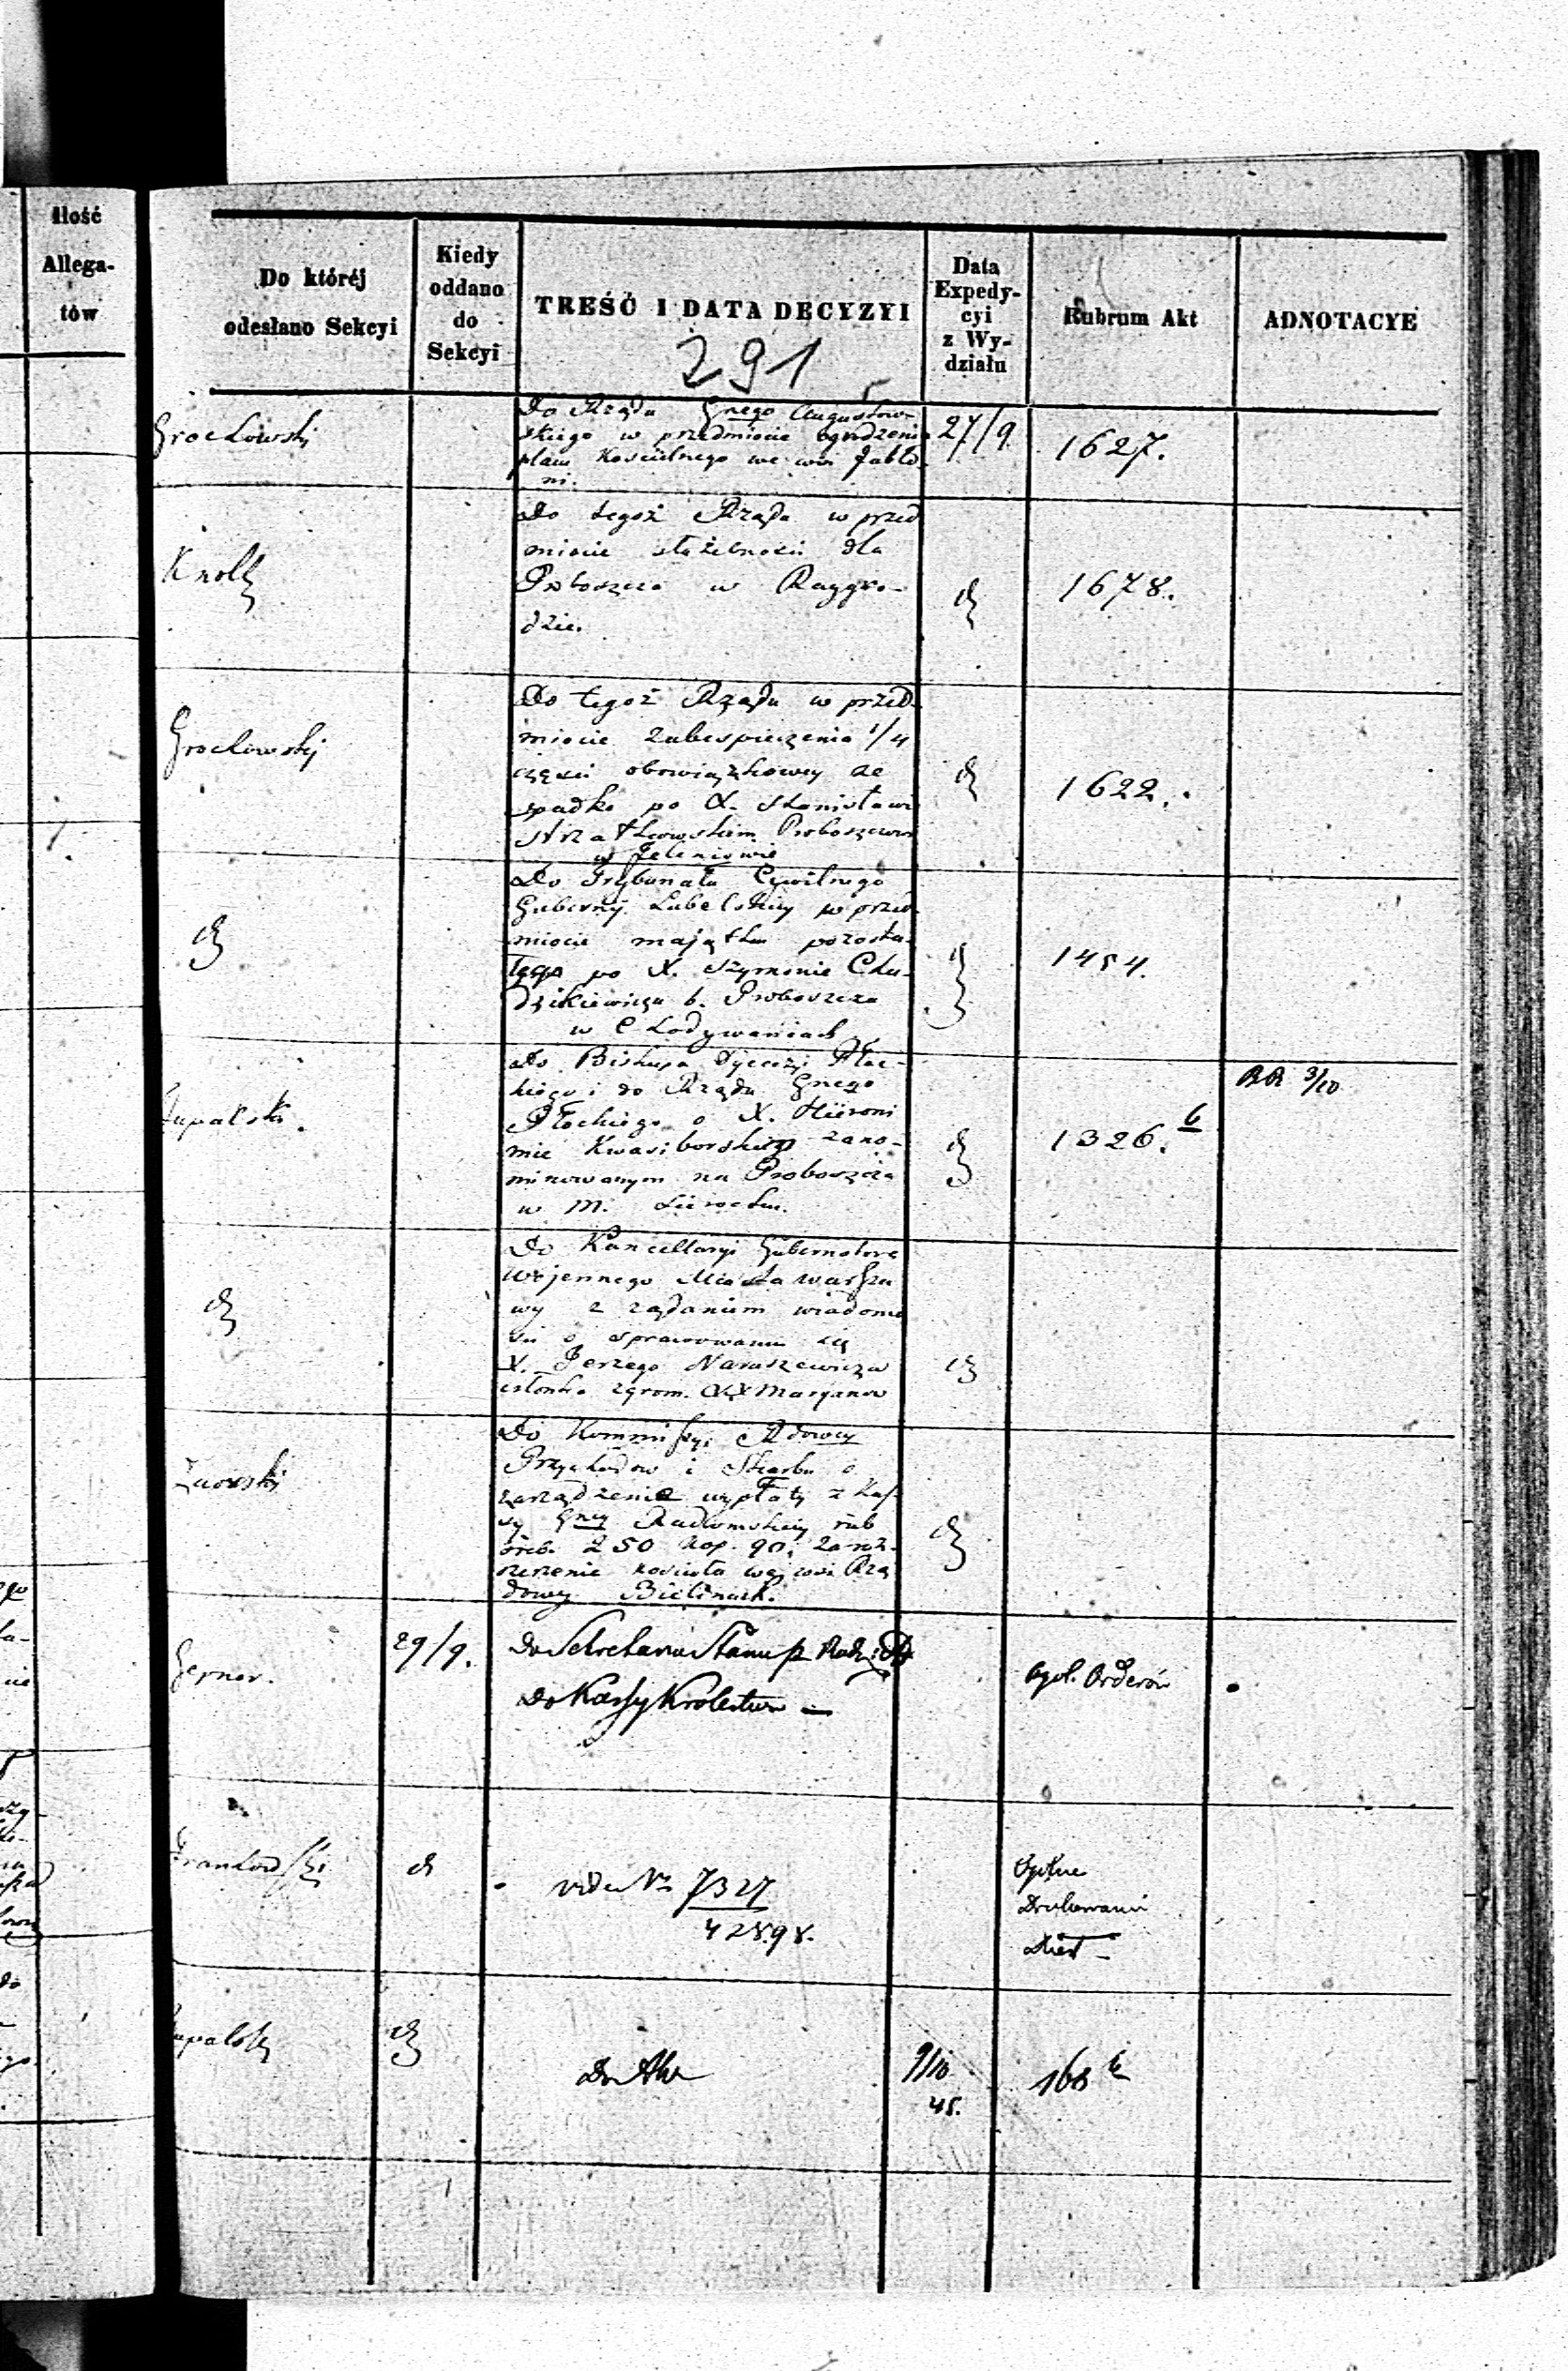 Ilość
Allega-
tów
Do któréj
odesłano Sekcyi
Kiedy
oddano
do
Sekcyi
TREŚĆ I DATA DECYZYI
291
Data
Expedy-
cyi
z Wy-
działu
Rubrum Akt
ADNOTACYE
Grochowski
Do Rządu Gnego Augustow-
skiego w przedmiocie ogrodzenia
placu Kościelnego we wsi Jabło-
ni.
27/9
1627.
Knoll
Do tegoż Rządu w przed
miocie służebności dla
Proboszcza w Raygro-
dzie.
1678.
Grochowski
Do tegoż Rządu w przed-
miocie zabespieczenia 1/4
części obowiązkowey ze
spadku po X. Stanisławie
Proboszczu
w Jeleniewie
1622.
Do Trybunału Cywilnego
Gubernij Lubelskiey w przed-
miocie majątku pozosta-
łego po X. Szymonie Chu-
dzikiewiczu b. Proboszcza
w Chodywańcach
1454.
Do Biskupa Dyecezji Płoc-
kiego i do Rządu Gnego
Płockiego o X. Hieroni
mie Kwasiborskiego zano-
minowanym na Proboszcza
w m. Sierocku.
1326. 6
RR 3/10
Do Kancellaryi Gubernatora
Wojennego Miasta Warsza
wy z żądaniem wiadomo
ści o sprawowaniu się
X. Jerzego Naruszewicza
członka zgrom. XX Maryanów
Do Kommissyi Rdowey
Przychodów i Skarbu o
zarządzenie wypłaty z Kas-
sy Gney Radomskiey rub
sreb. 250 kop. 90,
kościoła we wsi Rzą
dowey Bielinach.
Gerner.
29/9.
Do Sekretarza Stanu
Do Kassy Królestwa —
Ogól. Orderów
Frankowski
d
vide Nr 7327
42898.
Ogólne
Drukowanie
Dzieł —
Do Akt
9/10
45.
168